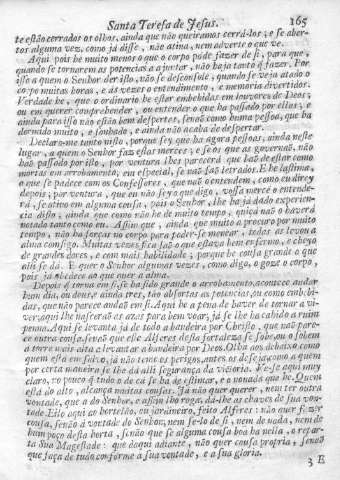 Santa Teresa de Jesus. 165
te estão cerrados os olhos, ainda que não queiramos cerrá-los; e se aber-
tos alguma vez, como já disse, não atina, nem adverte o que ve.
Aqui pois he muito menos o que o corpo póde fazer de si, para que,
quando se tornarem as potencias a juntar, não haja tanto q̃ fazer. Por
isso a quem o Senhor der isto, não se desconsole, quando se veja atado o
corpo muitas horas, e ás vezes o entendimento, e memoria divertidos.
Verdade he, que o ordinario he estar embebidas em louvores de Deos;
ou em querer comprehender, ou entender o que ha passado por ellas; e
ainda para isto não estão bem despertas, senaõ como huma pessoa, que ha
dormido muito, e sonhado, e ainda não acaba de despertar.
Declaro-me tanto nisto, porque sey que ha agora pessoas, ainda neste
lugar, a quem o Senhor faz estas merces; e se os que as governaõ, não
haõ passado por isto, por ventura lhes parecerá que haõ de estar como
mortas em arrobamento, em especial, se naõ saõ letrados. E he lastima,
o que se padece com os Confessores, que naõ o entendem, como eu direy
depois; por ventura, que eu não sey o que digo, vossa mercé o entende-
rá, se atino em alguma cousa, pois o Senhor, lhe ha já dado experien-
cia disso, ainda que como não he de muito tempo, quiçá naõ o haverá
notado tanto como eu. Assim que, ainda que muito o procuro por muito
tempo, não ha forças no corpo para poder-se menear, todas as levou a
alma comsigo. Muitas vezes fica saõ o que estava bem enfermo, e cheyo
de grandes dores, e com mais habilidade; porque he cousa grande o que
alli se dá. E quer o Senhor algumas vezes, como digo, o goze o corpo,
pois já obedece ao que quer a alma.
Depois q̃ torna em si, se ha sido grande o arrobamento, acontece andar
hum dia, ou dous, e ainda tres, tão absortas as potencias, ou como embebi-
das, que não parece andaõ em si. Aqui he a pena de haver de tornar a vi-
ver, aqui lhe nasceraõ as azas para bem voar, já se lhe ha cahido a ruim
penna. Aqui se levanta já de todo a bandeira por Christo, que naõ pare-
ce outra cousa, senaõ que este Alferes desta fortaleza se sobe, ou o sobem
á torre mais alta a levantar a bandeira por Deos. Olha aos debaixo como
quem está em salvo, já não teme os perigos, antes os deseja, como a quem
por certa maneira se lhe dá alli segurança da victoria. Ve-se aqui muy
claro, o pouco q̃ tudo o de cá se ha de estimar, e o nonada que he. Quem
está do alto, alcança muitas cousas. Já não quer querer, nem ter outra
vontade, que a do Senhor, e assim lho roga, dá-lhe as chaves de sua von-
tade. Ello aqui ao hortelão, ou jardineiro, feito Alferes; não quer fazer
cousa, senão a vontade do Senhor, nem se-lo de si, nem de nada, nem de
hum poço desta horta, senão que se alguma cousa boa ha nella, o repar-
ta Sua Magestade; que daqui adiante, não quer cousa propria, senaõ
que faça de tudo conforme a sua vontade, e a sua gloria.
3 E